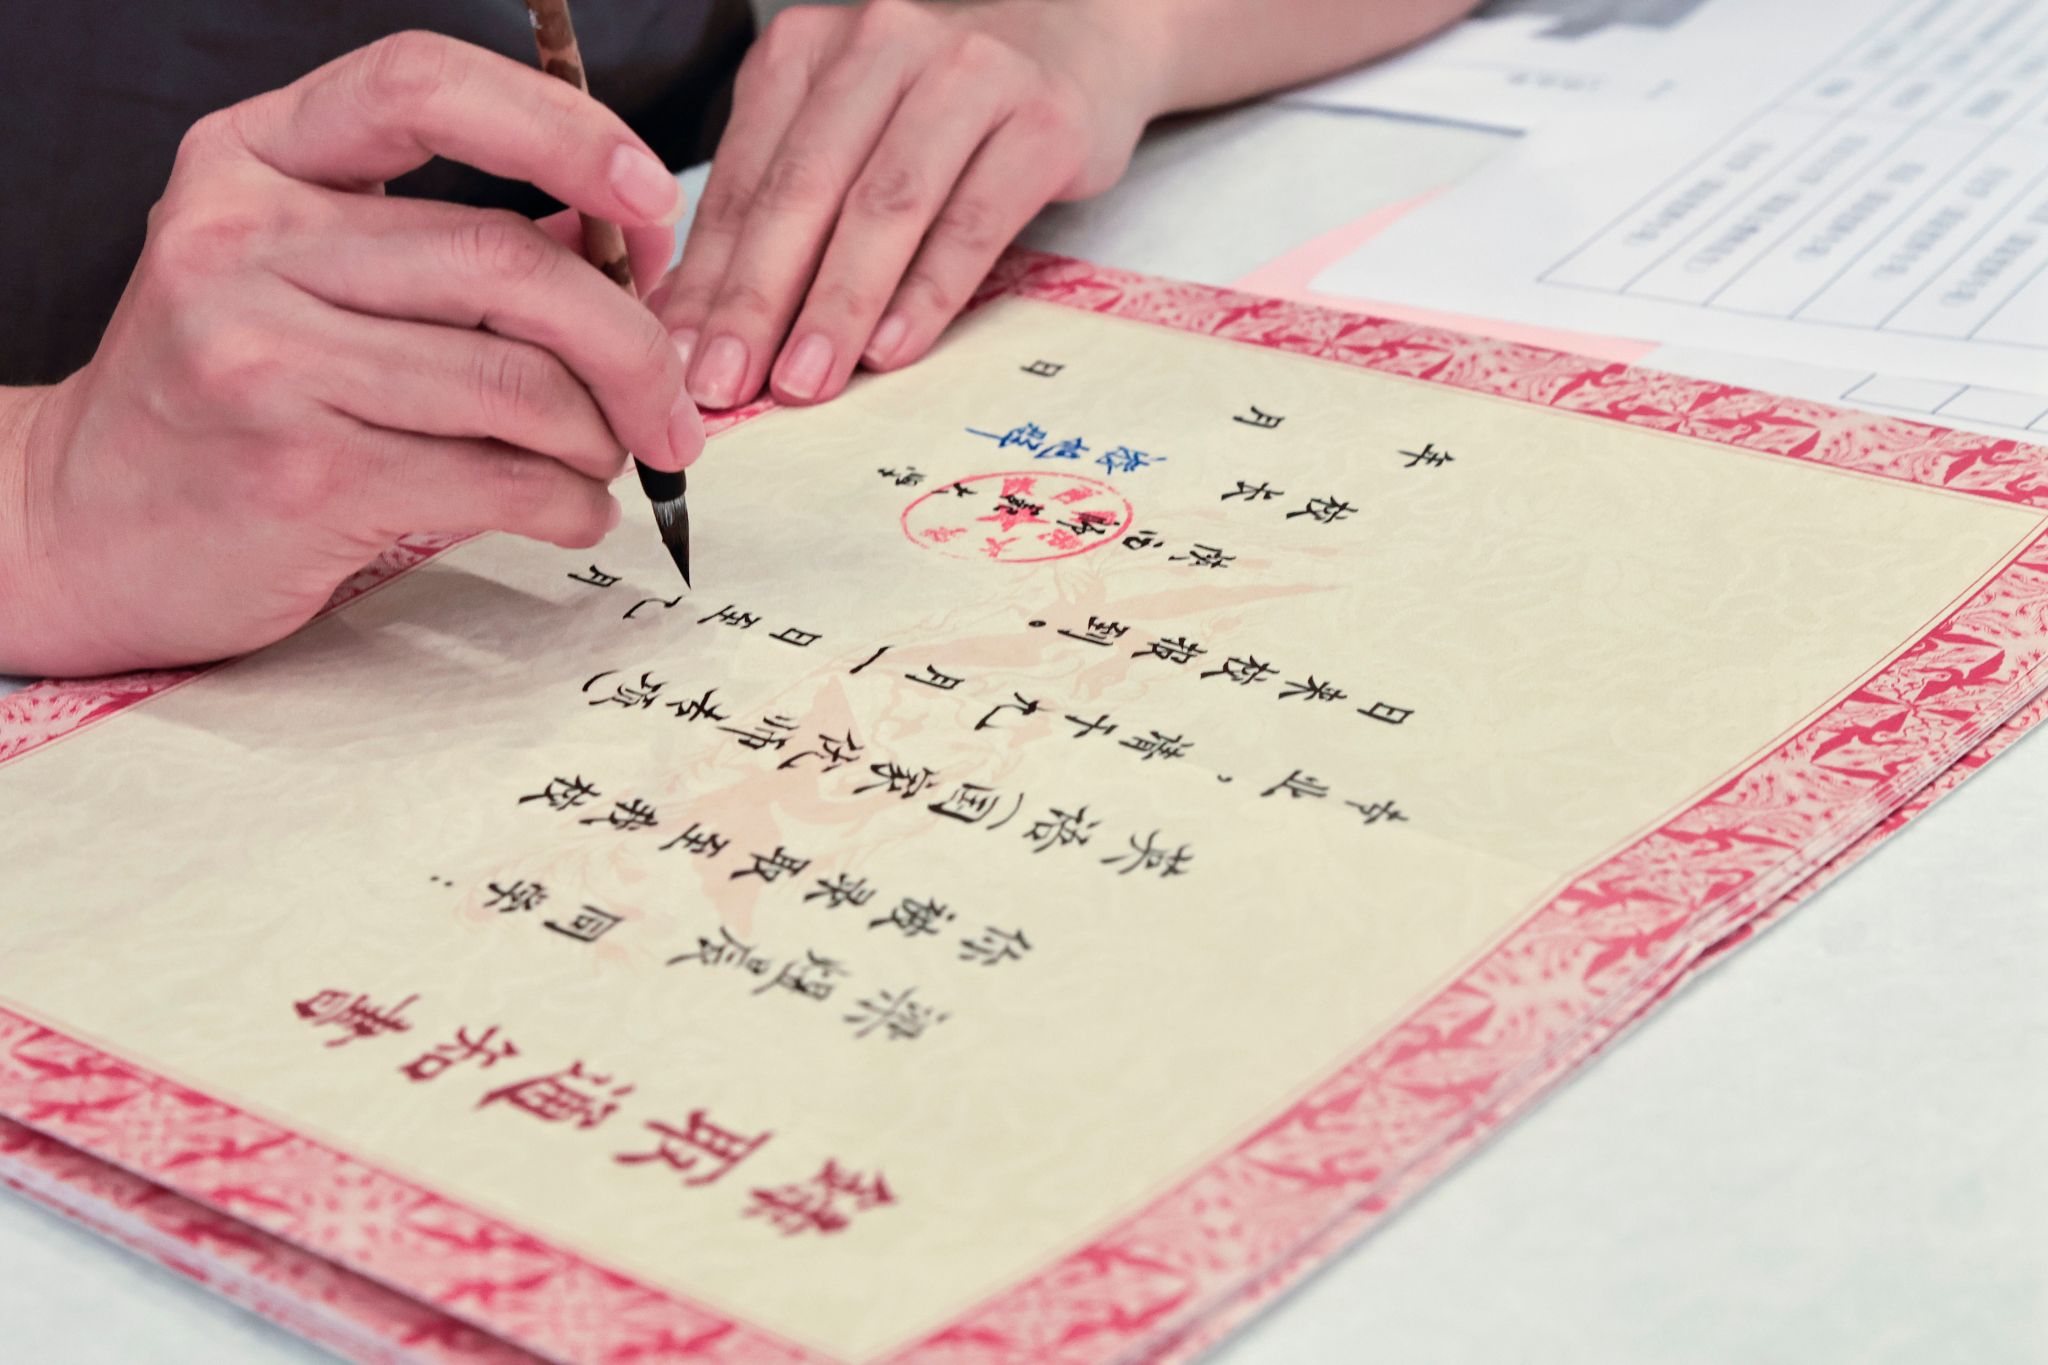 錄取通知書
梁煜晨同学:
你被录取至我校
英语(国家优师专项)
专业,请于九月一日至九月
日来校报到。
陕西師範大學
校长 游旭群
年 月 日